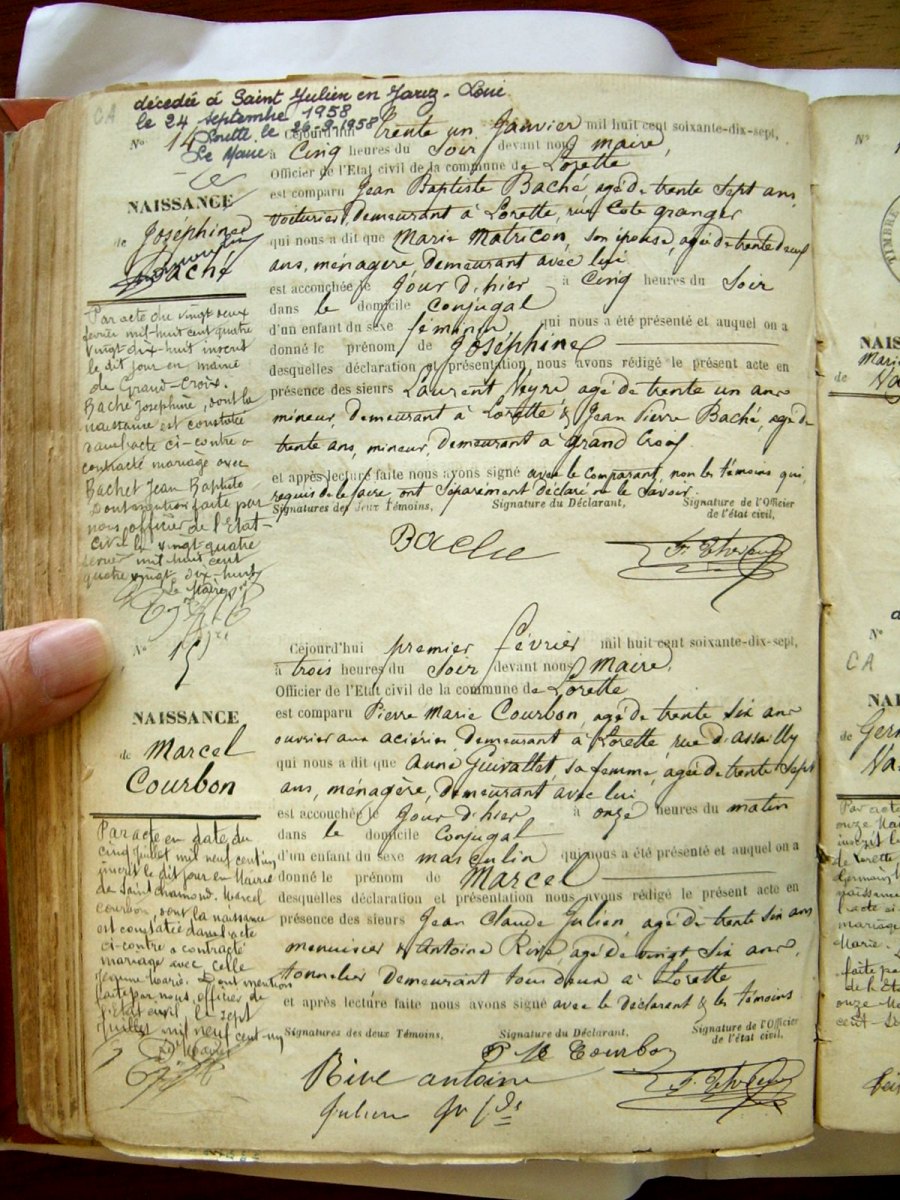 CA
décedée à Saint Julien en Jarez - Loire
le 24 septembre 1958
Lorette le 26-9-1958
Le Maire
N° 14
NAISSANCE
de Joséphine
Baché
Par acte du vingt deux
février mil-huit cent quatre
vingt-dix-huit inscrit
le dit jour en mairie
de Grand-Croix.
Baché Joséphine, dont la
naissance est constatée
dans l'acte ci-contre a
contracté mariage avec
Bachet Jean Baptiste
Dont mention faite par
nous, officier de l'Etat-
Civil le vingt-quatre
février mil huit cent
quatre vingt dix-huit
Le Maire
Cejourd'hui trente un Janvier mil huit cent soixante-dix-sept,
à Cinq heures du Soir devant nous maire,
Officier de l'Etat civil de la commune de Lorette
est comparu Jean Baptiste Baché, agé de trente sept ans
voiturier, demeurant à Lorette, rue Cote granger
qui nous a dit que Marie Matricon, son épouse, agée de trente deux
ans, ménagère, demeurant avec lui
est accouchée le Jour d'hier à Cinq heures du Soir
dans le domicile Conjugal
d'un enfant du sexe féminin qui nous a été présenté et auquel on a
donné le prénom de Joséphine
desquelles déclaration et présentation nous avons rédigé le présent acte en
présence des sieurs Laurent Neyre agé de trente un ans
mineur, demeurant à Lorette & Jean Pierre Baché, agé de
trente ans, mineur, demeurant à grand Croix
et après lecture faite nous avons signé avec le Comparant, non les témoins qui,
requis de le faire, ont séparément déclaré ne le Savoir.
Signatures des deux Témoins, Signature du Déclarant, Signature de l'Officier
de l'état civil,
Bache
N° 15
NAISSANCE
de Marcel
Courbon
Par acte en date du
cinq Juillet mil neuf cent un
inscrit le dit jour en Mairie
de Saint chamond. Marcel
Courbon, dont la naissance
est constatée dans l'acte
ci-contre a contracté
mariage avec Celle
Jeanne Marie. Dont mention
faite par nous, officier de
l'Etat civil, le sept
Juillet mil neuf cent-un
Le Maire
Cejourd'hui premier février mil huit cent soixante-dix-sept,
à trois heures du Soir devant nous Maire,
Officier de l'Etat civil de la commune de Lorette
est comparu Pierre Marie Courbon, agé de trente six ans
ouvrier aux aciéries demeurant à Lorette rue d'assailly
qui nous a dit que Anne Guivallet, sa femme, agée de trente Sept
ans, ménagère, demeurant avec lui
est accouchée le Jour d'hier à onze heures du matin
dans le domicile Conjugal
d'un enfant du sexe masculin qui nous a été présenté et auquel on a
donné le prénom de Marcel
desquelles déclaration et présentation nous avons rédigé le présent acte en
présence des sieurs Jean Claude Julien, agé de trente six ans
menuisier & Antoine Rive agé de vingt six ans
tonnelier demeurant tous deux à Lorette
et après lecture faite nous avons signé avec le déclarant & les témoins
Signatures des deux Témoins, Signature du Déclarant, Signature de l'Officier
de l'état civil.
P M Courbon
Rive antoine
Julien
N°
TIMBRE
NAIS
Marie
de
N°
CA
NAI
de Germ
Par acte
onze Mai
inscrit le
de Lorette,
Germain
naissance
l'acte ci-
mariage
Marie.
faite pa
de l'Et
onze Ma
cent-